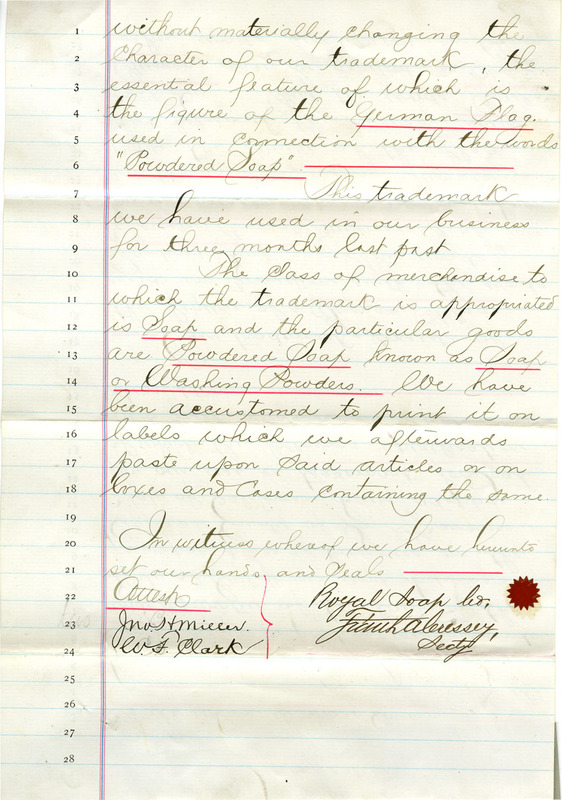 1 without materially changing the
2 character of our trademark, the
3 essential feature of which is
4 the figure of the German Flag.
5 used in connection with the words
6 "Powdered Soap".
7 This trademark
8 we have used in our business
9 for three months last past
10 The Class of merchandise to
11 which the trademark is appropriated
12 is Soap and the particular goods
13 are Powdered Soap known as Soap
14 or Washing Powders. We have
15 been accustomed to print it on
16 labels which we afterwards
17 paste upon said articles or on
18 boxes and Cases containing the same.
19
20 In witness whereof we have hereunto
21 set our hands and seals
22 Attest Royal Soap Co,
23 Jno H Miller.
24 W. F. Clark Secty
25
26
27
28